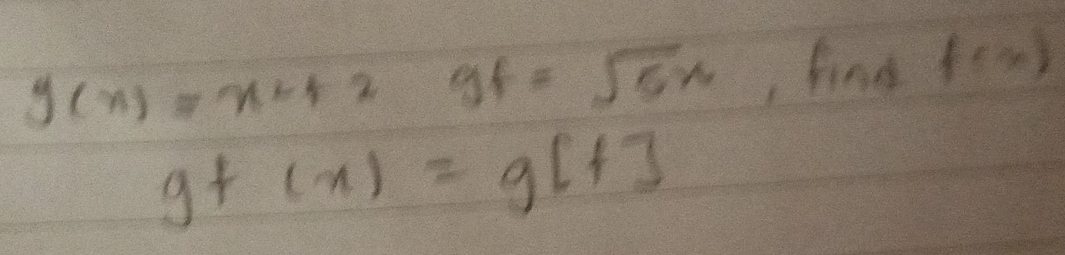 g(x) = x² + 2 gf = √6x , find f(x)
gf (x) = g[f]